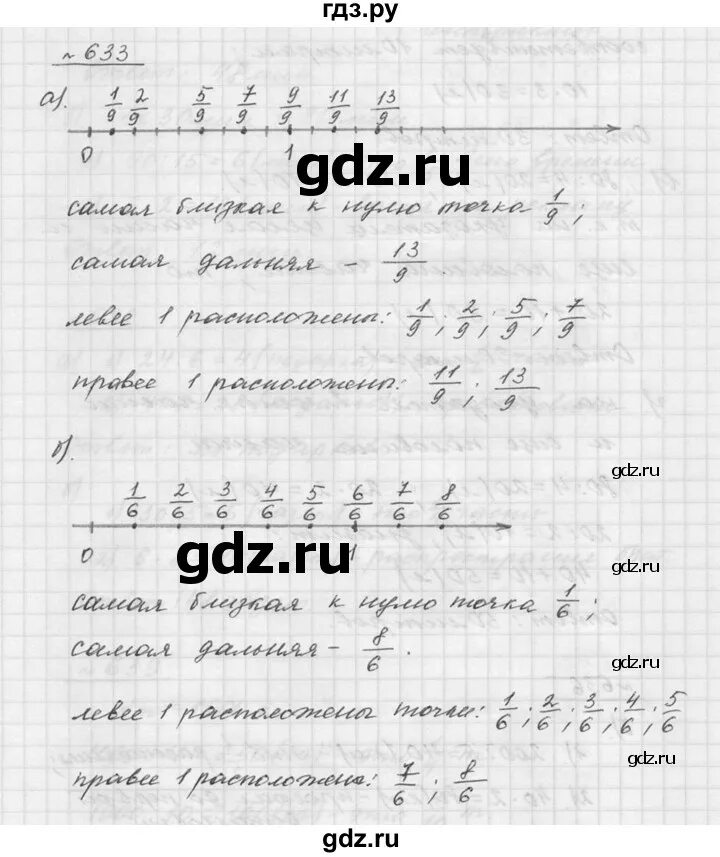 гдз.ру
№ 633
а).
1/9 2/9 5/9 7/9 9/9 11/9 13/9
0 1
gdz.ru
самая близкая к нулю точка 1/9;
самая дальняя - 13/9.
левее 1 расположены: 1/9; 2/9; 5/9; 7/9
правее 1 расположены: 11/9; 13/9
б).
gdz.ru
1/6 2/6 3/6 4/6 5/6 6/6 7/6 8/6
0 1
gdz.ru
gdz.ru
самая близкая к нулю точка 1/6;
самая дальняя - 8/6.
gdz.ru
левее 1 расположены точки: 1/6; 2/6; 3/6; 4/6; 5/6
gdz.ru
правее 1 расположена: 7/6; 8/6
gdz.ru